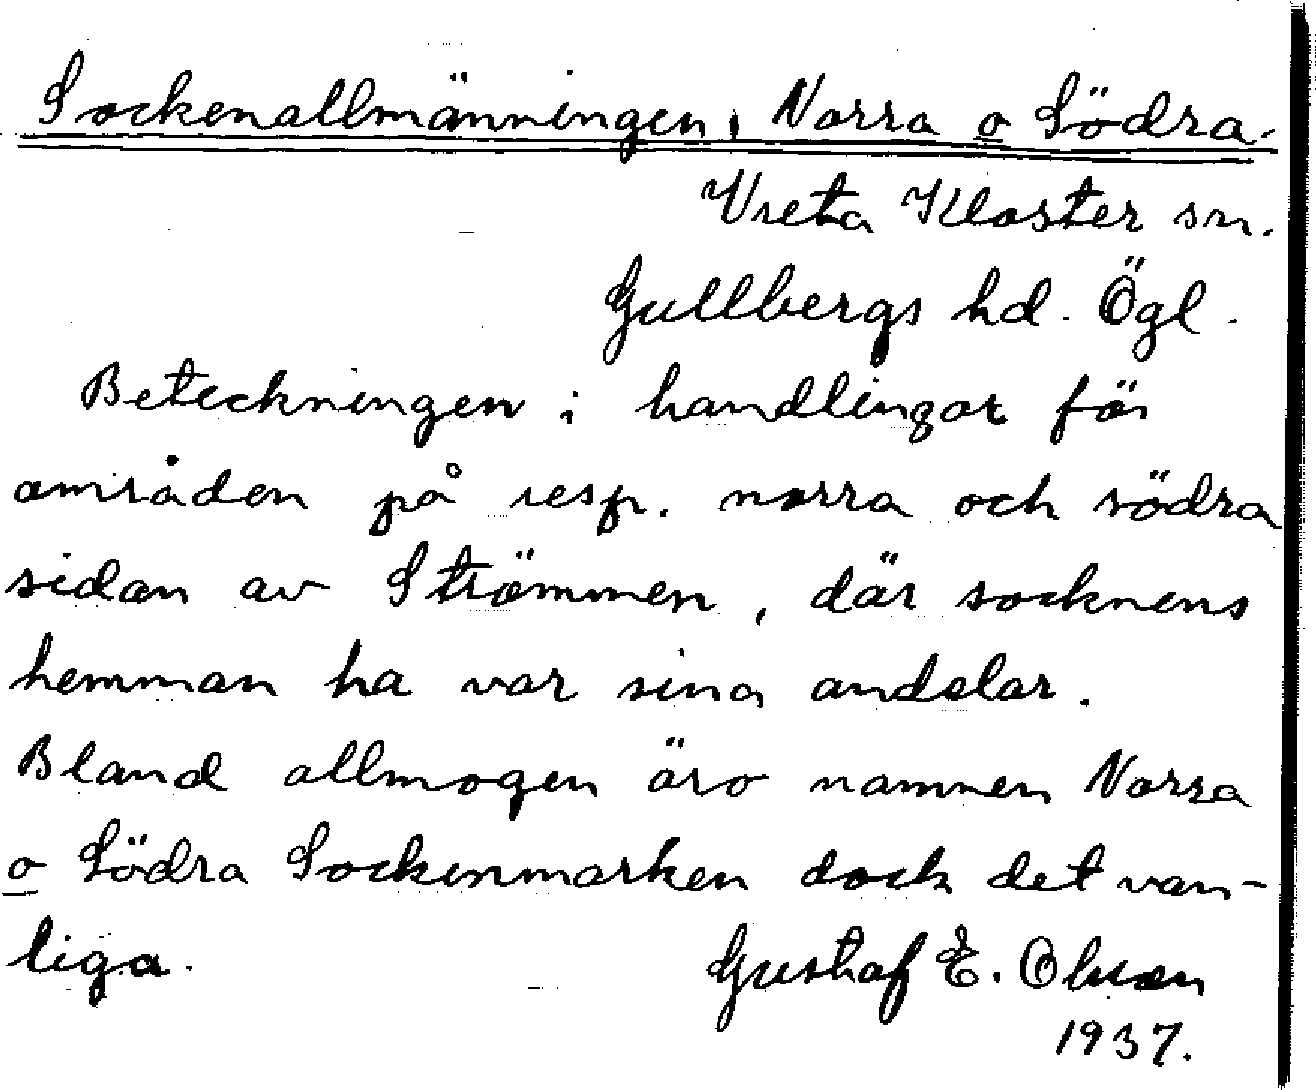 Sockenallmänningen, Norra o Södra.
Vreta Kloster sn.
Gullbergs hd. Ögl.
Beteckningen i handlingar för
områden på resp. norra och södra
sidan av Strömmen, där socknens
hemman ha var sina andelar.
Bland allmogen äro namnen Norra
o Södra Sockenmarken dock det van-
liga.
Gustaf E. Olsson
1937.